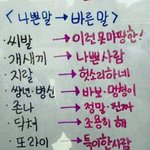 <나쁜말 → 바른말>
·씨발 → 이런못마땅한!
·개새끼 → 나쁜사람
·지랄 → 헛소리하네
·썅년·병신 → 바보·멍청이
·존나 → 정말·진짜
·닥쳐 → 조용히 해
·또라이 → 특이한사람